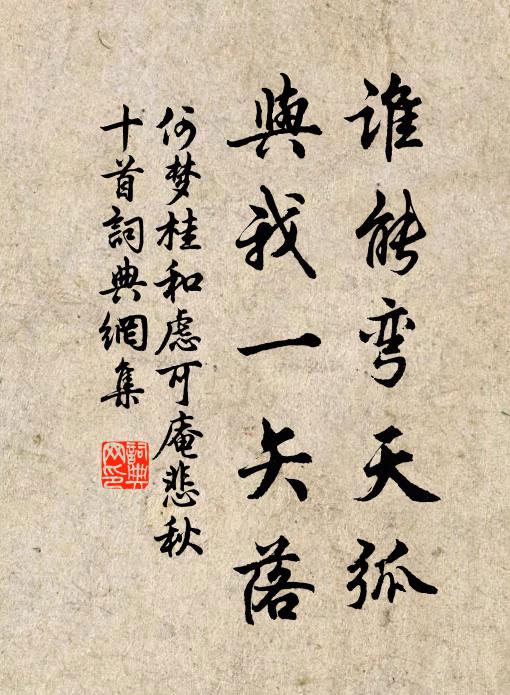 谁能弯天弧
與我一矢落
何梦桂和慮可庵悲秋
十首詞典網集
詞典
网印